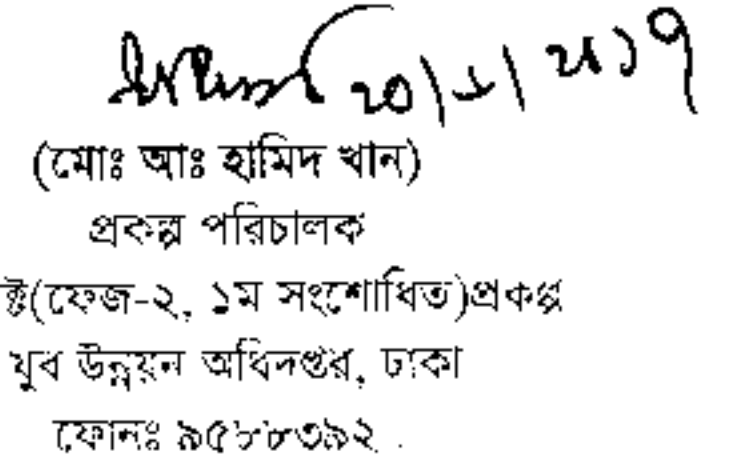 (মোঃ আঃ হামিদ খান)
প্রকল্প পরিচালক
ক্ট(ফেজ-২, ১ম সংশোধিত)প্রকল্প
যুব উন্নয়ন অধিদপ্তর, ঢাকা
ফোনঃ ৯৫৮৮৩৯২